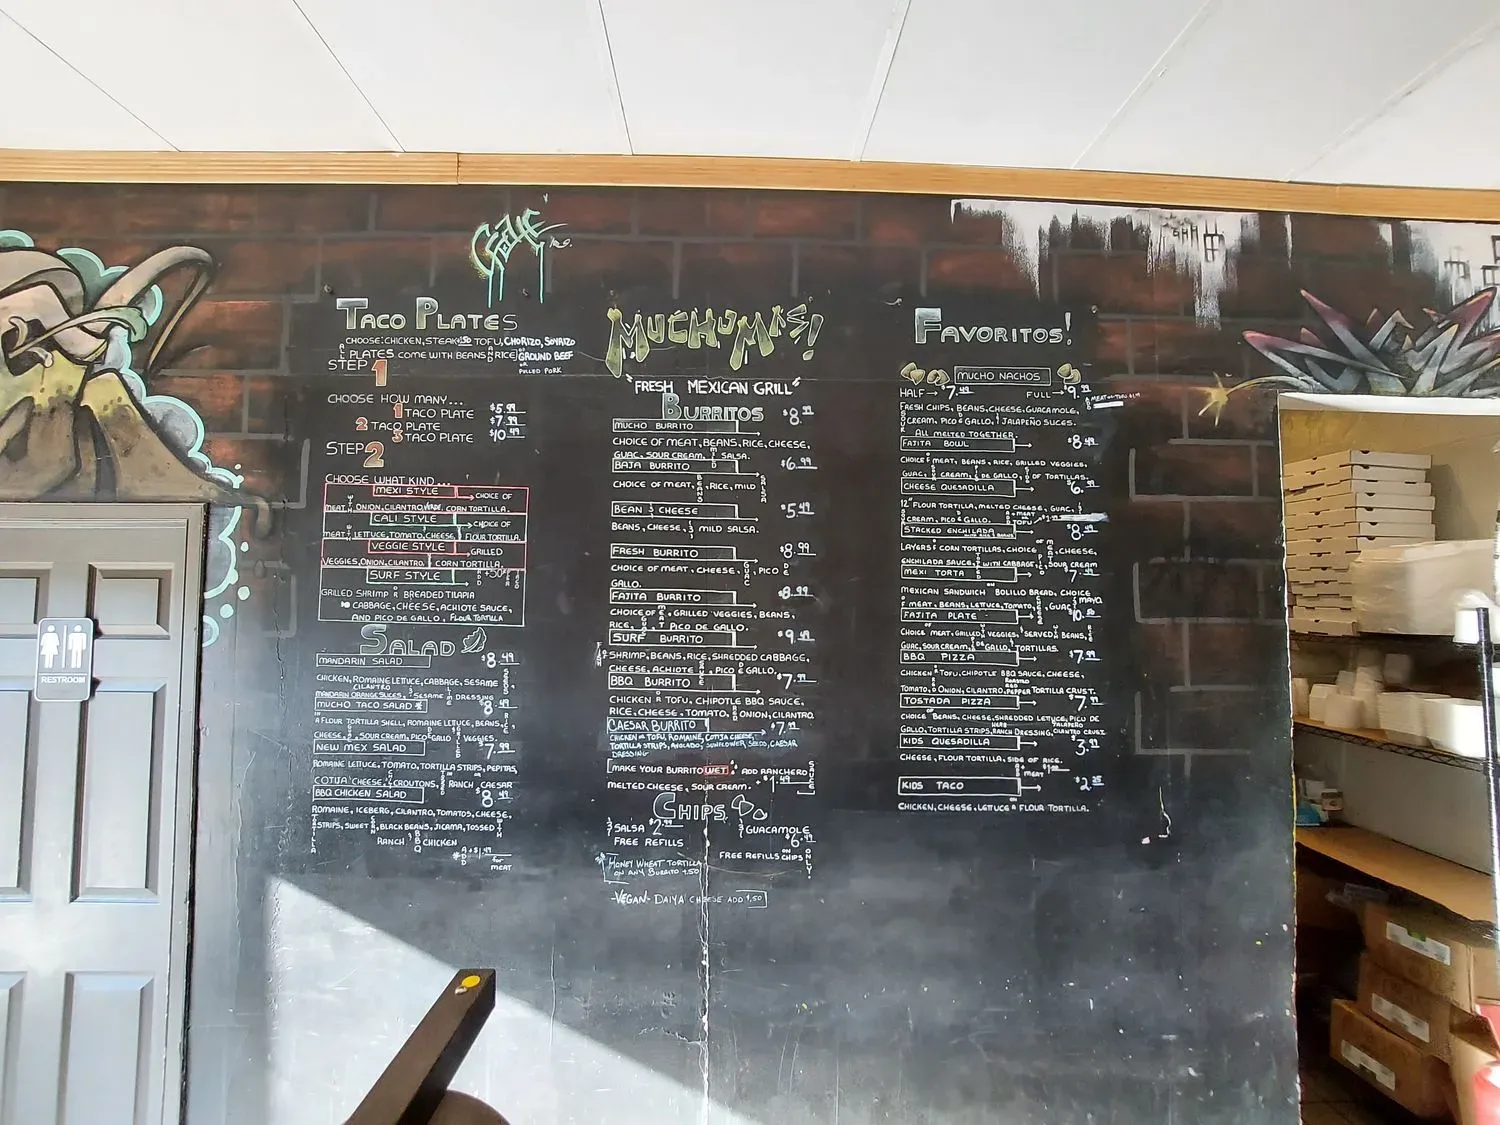 RESTROOM
TACO PLATES
CHOOSE: CHICKEN, STEAK +.50 TOFU, CHORIZO, SOYRIZO
ALL PLATES COME WITH BEANS AND RICE OR GROUND BEEF
OR PULLED PORK
STEP 1
CHOOSE HOW MANY...
1 TACO PLATE $5.99
2 TACO PLATE $7.99
3 TACO PLATE $10.49
STEP 2
CHOOSE WHAT KIND...
MEXI STYLE CHOICE OF
MEAT, ONION, CILANTRO, VERDE, CORN TORTILLA.
CALI STYLE CHOICE OF
MEAT, LETTUCE, TOMATO, CHEESE, FLOUR TORTILLA.
VEGGIE STYLE GRILLED
VEGGIES, ONION, CILANTRO, CORN TORTILLA.
SURF STYLE ADD +50¢ PER TACO
GRILLED SHRIMP OR BREADED TILAPIA
CABBAGE, CHEESE, ACHIOTE SAUCE,
AND PICO DE GALLO, FLOUR TORTILLA
SALAD
MANDARIN SALAD $8.49
CHICKEN, ROMAINE LETTUCE, CABBAGE, SESAME
CILANTRO
MANDARIN ORANGE SLICES, SESAME DRESSING
MUCHO TACO SALAD * 8.49
IN A FLOUR TORTILLA SHELL, ROMAINE LETTUCE, BEANS, RICE
CHEESE, SOUR CREAM, PICO GALLO VEGGIES.
NEW MEX SALAD $7.99
ROMAINE LETTUCE, TOMATO, TORTILLA STRIPS, PEPITAS,
COTIJA CHEESE, CROUTONS, RANCH OR CAESAR
BBQ CHICKEN SALAD $8.49
ROMAINE, ICEBERG, CILANTRO, TOMATOS, CHEESE,
TORTILLA STRIPS, SWEET CORN, BLACK BEANS, JICAMA, TOSSED WITH
RANCH & BBQ CHICKEN
* ADD +$1.49 for MEAT
MUCHOMAS!
"FRESH MEXICAN GRILL"
BURRITOS
MUCHO BURRITO $8.99
CHOICE OF MEAT, BEANS, RICE, CHEESE,
GUAC, SOUR CREAM, MILD SALSA.
BAJA BURRITO $6.99
CHOICE OF MEAT, BEANS, RICE, MILD SALSA
BEAN & CHEESE $5.49
BEANS, CHEESE, & MILD SALSA.
FRESH BURRITO $8.99
CHOICE OF MEAT, CHEESE, GUAC, PICO DE
GALLO.
FAJITA BURRITO $8.99
CHOICE OF MEAT, GRILLED VEGGIES, BEANS,
RICE, GUAC, PICO DE GALLO.
SURF BURRITO $9.49
SHRIMP, BEANS, RICE, SHREDDED CABBAGE,
CHEESE, ACHIOTE SAUCE, PICO DE GALLO.
BBQ BURRITO $7.99
CHICKEN OR TOFU, CHIPOTLE BBQ SAUCE,
RICE, CHEESE, TOMATO, RED ONION, CILANTRO
CAESAR BURRITO $7.99
CHICKEN OR TOFU, ROMAINE, COTIJA CHEESE,
TORTILLA STRIPS, AVOCADO, SUNFLOWER SEEDS, CAESAR
DRESSING
MAKE YOUR BURRITO WET: ADD RANCHERO SAUCE
MELTED CHEESE, SOUR CREAM. +$1.49
CHIPS
SALSA $2.99
FREE REFILLS
GUACAMOLE $6.49
FREE REFILLS ON CHIPS ONLY!
*HONEY WHEAT TORTILLA
ON ANY BURRITO +.50
-VEGAN- DAIYA CHEESE ADD $1.50
FAVORITOS!
MUCHO NACHOS
HALF → $7.49 FULL → $9.99
FRESH CHIPS, BEANS, CHEESE, GUACAMOLE,
SOUR CREAM, PICO DE GALLO, JALAPEÑO SLICES.
ALL MELTED TOGETHER.
FAJITA BOWL $8.49
CHOICE OF MEAT, BEANS, RICE, GRILLED VEGGIES,
GUAC, SOUR CREAM, PICO DE GALLO, SIDE OF TORTILLAS.
CHEESE QUESADILLA $6.99
12" FLOUR TORTILLA, MELTED CHEESE, GUAC,
SOUR CREAM, PICO DE GALLO.
STACKED ENCHILADA $8.49
LAYERS OF CORN TORTILLAS, CHOICE OF MEAT, CHEESE,
ENCHILADA SAUCE, WITH CABBAGE, SOUR CREAM
MEXI TORTA $7.49
MEXICAN SANDWICH ON BOLILLO BREAD, CHOICE
OF MEAT, BEANS, LETTUCE, TOMATO, CHEESE, GUAC & MAYO
FAJITA PLATE $10.50
CHOICE OF MEAT, GRILLED VEGGIES, SERVED W/ BEANS, RICE
GUAC, SOUR CREAM, PICO DE GALLO, TORTILLAS.
BBQ PIZZA $7.99
CHICKEN OR TOFU, CHIPOTLE BBQ SAUCE, CHEESE,
TOMATO, RED ONION, CILANTRO, ROASTED RED PEPPER TORTILLA CRUST.
TOSTADA PIZZA $7.99
CHOICE OF BEANS, CHEESE, SHREDDED LETTUCE, PICO DE
GALLO, TORTILLA STRIPS, RANCH DRESSING, JALAPEÑO CILANTRO CRUST
KIDS QUESADILLA $3.99
CHEESE, FLOUR TORTILLA, SIDE OF RICE.
ADD MEAT $1.00
KIDS TACO $2.25
CHICKEN, CHEESE, LETTUCE ON A FLOUR TORTILLA.